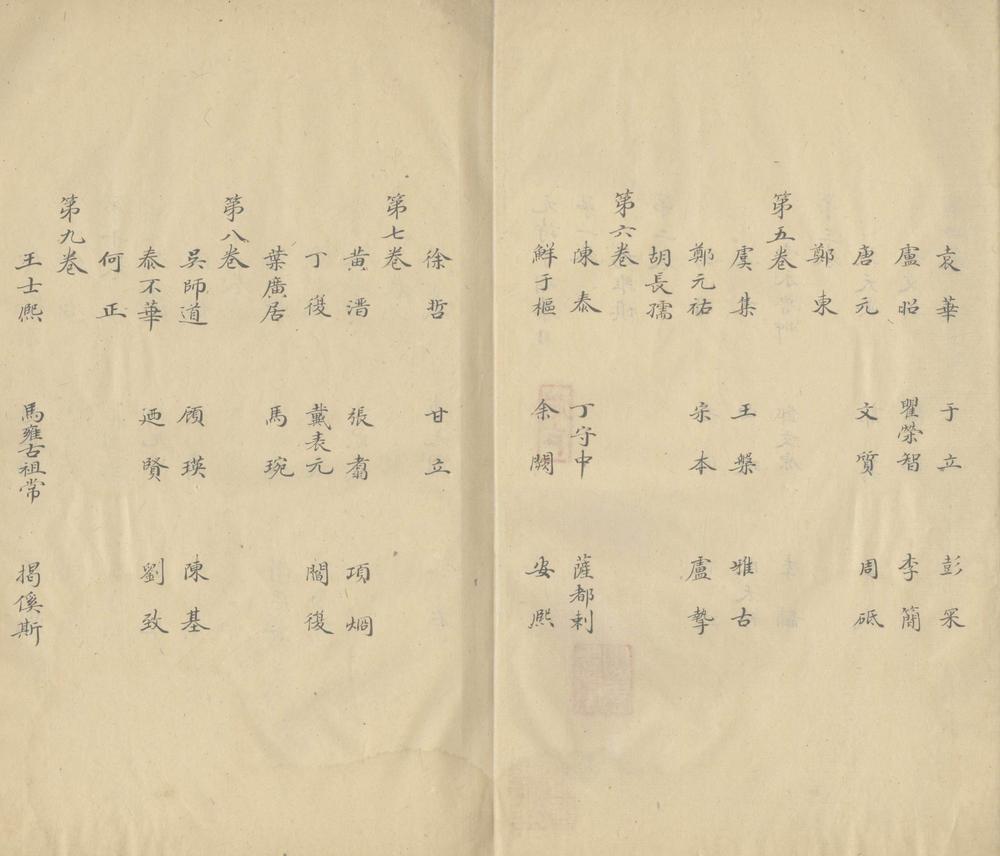 袁華 于立 彭罙
盧昭 瞿榮智 李簡
唐元 文質 周砥
鄭東
第五卷
虞集 王槃 雅古
鄭元祐 宋本 盧摯
胡長孺
第六卷
陳泰 丁守中 薩都剌
鮮于樞 余闕 安熙
徐哲 甘立
第七卷
黄溍 張翥 項炯
丁復 戴表元 閻復
葉廣居 馬琬
第八卷
吳師道 顧瑛 陳基
泰不華 迺賢 劉致
何正
第九卷
王士熙 馬雍古祖常 揭傒斯